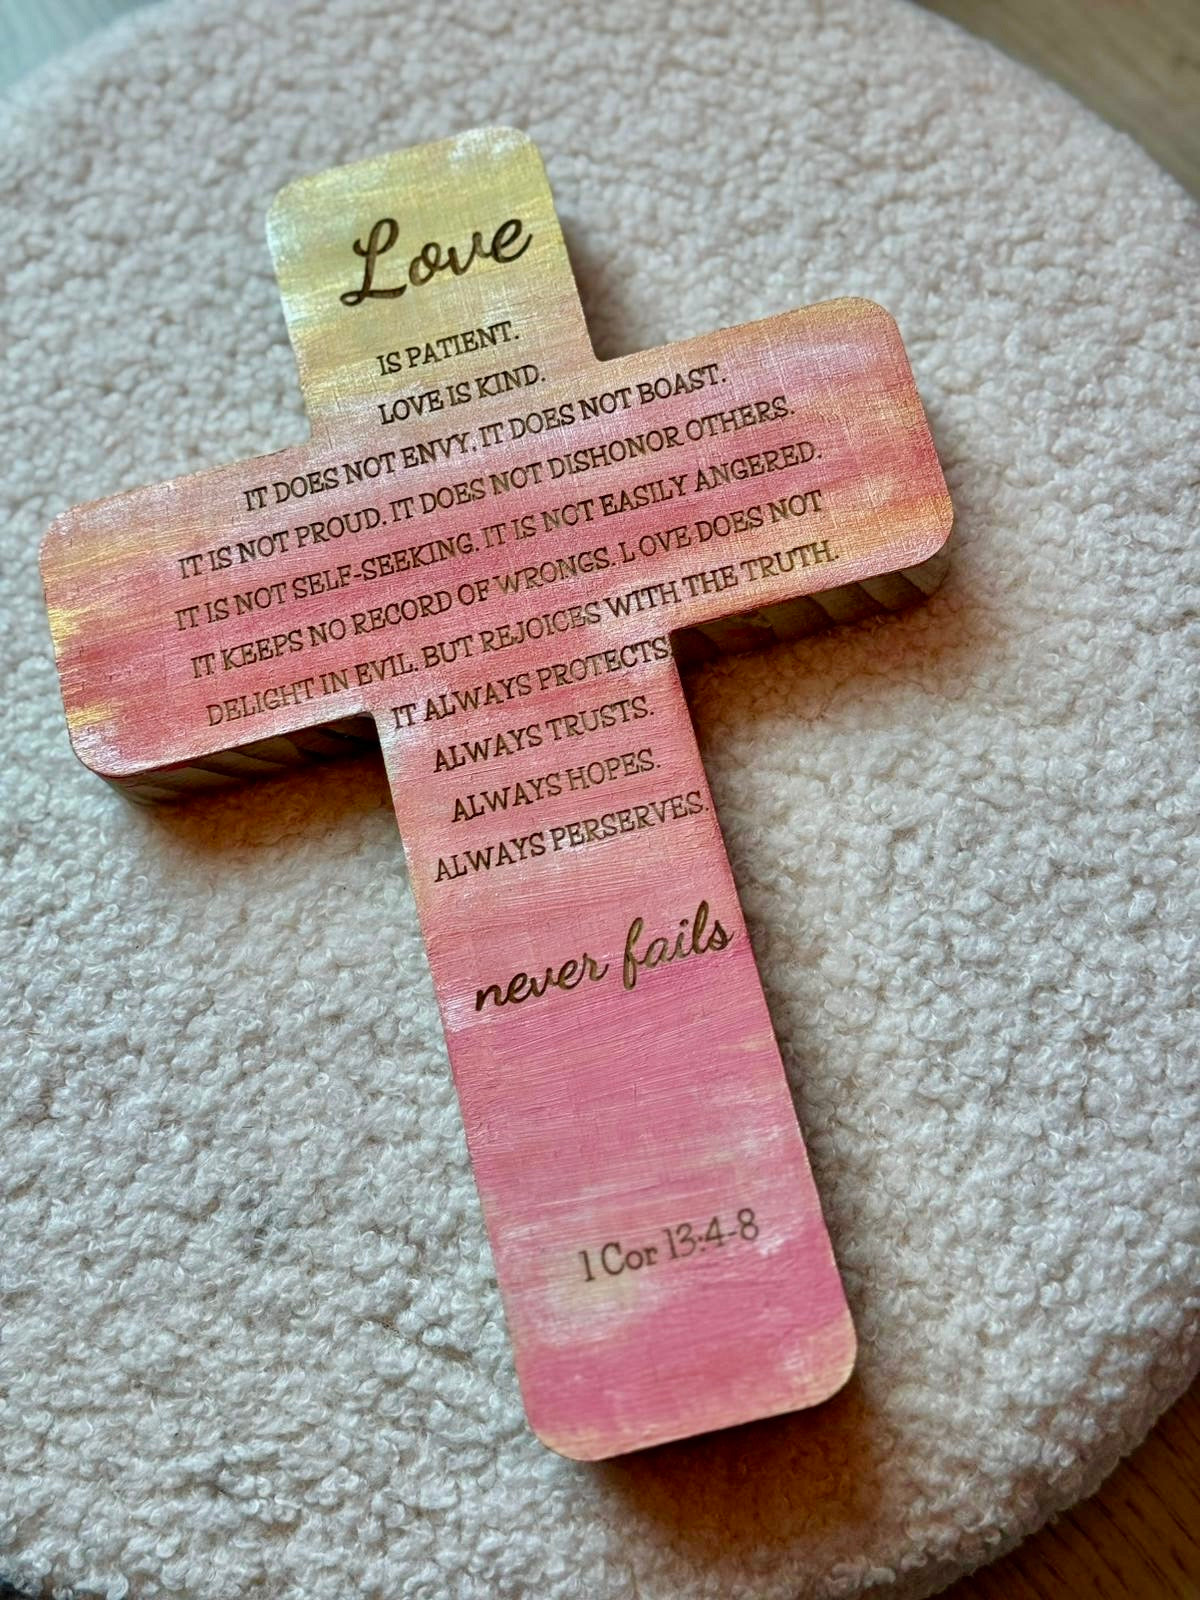 Love
IS PATIENT.
LOVE IS KIND.
IT DOES NOT ENVY. IT DOES NOT BOAST.
IT IS NOT PROUD. IT DOES NOT DISHONOR OTHERS.
IT IS NOT SELF-SEEKING. IT IS NOT EASILY ANGERED.
IT KEEPS NO RECORD OF WRONGS. LOVE DOES NOT
DELIGHT IN EVIL. BUT REJOICES WITH THE TRUTH.
IT ALWAYS PROTECTS.
ALWAYS TRUSTS.
ALWAYS HOPES.
ALWAYS PERSERVES.
never fails
1 Cor 13:4-8